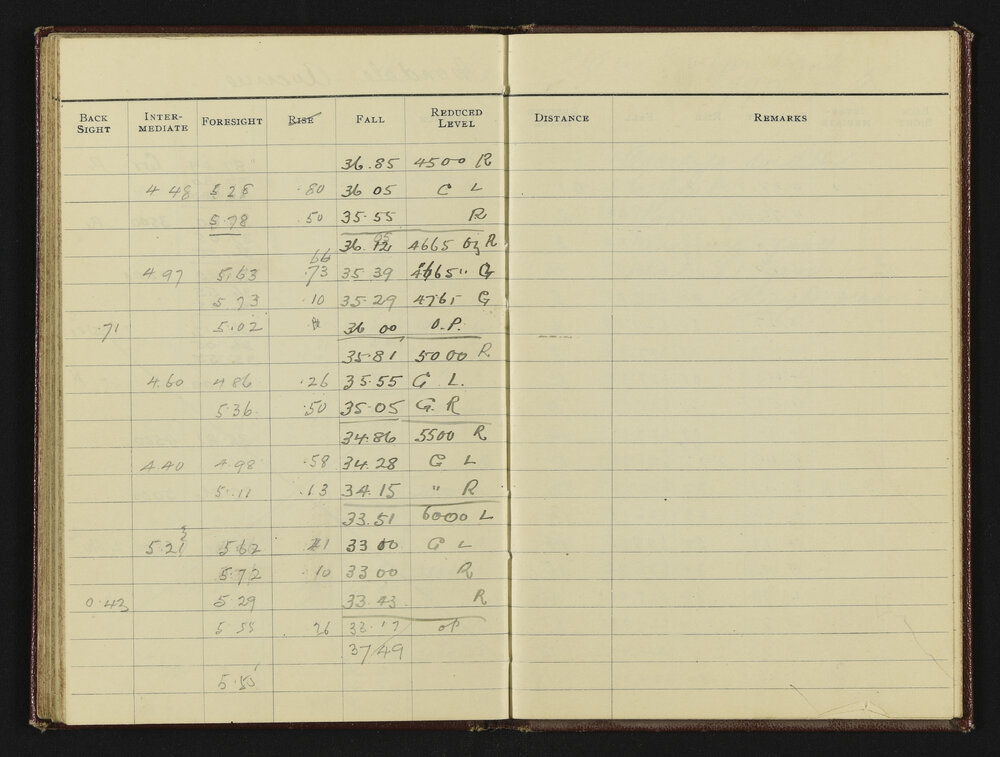 BACK SIGHT INTER-MEDIATE FORESIGHT RISE FALL REDUCED LEVEL DISTANCE REMARKS
36.85 4500 R
4.48 5.28 .80 36 05 C L
5.78 .50 35.55 R
36. 4665 R
66
4.97 5.63 .73 35 39 4665 " G
5 73 .10 35.29 4765 G
.71 5.02 36 00 O.P.
35.81 5000 R
4.60 4 86 .26 35.55 G L.
5.36. .50 35.05 G. R
34.86 5500 R
4.40 4.98 .58 34.28 G L
5.11 .13 34.15 " R
33.51 6000 L
5.21 5.62 41 33 G L
5.72 10 33 00 R
0.43 5 29 33.43 R
5 55 26 33.17 OP
37.49
5.55